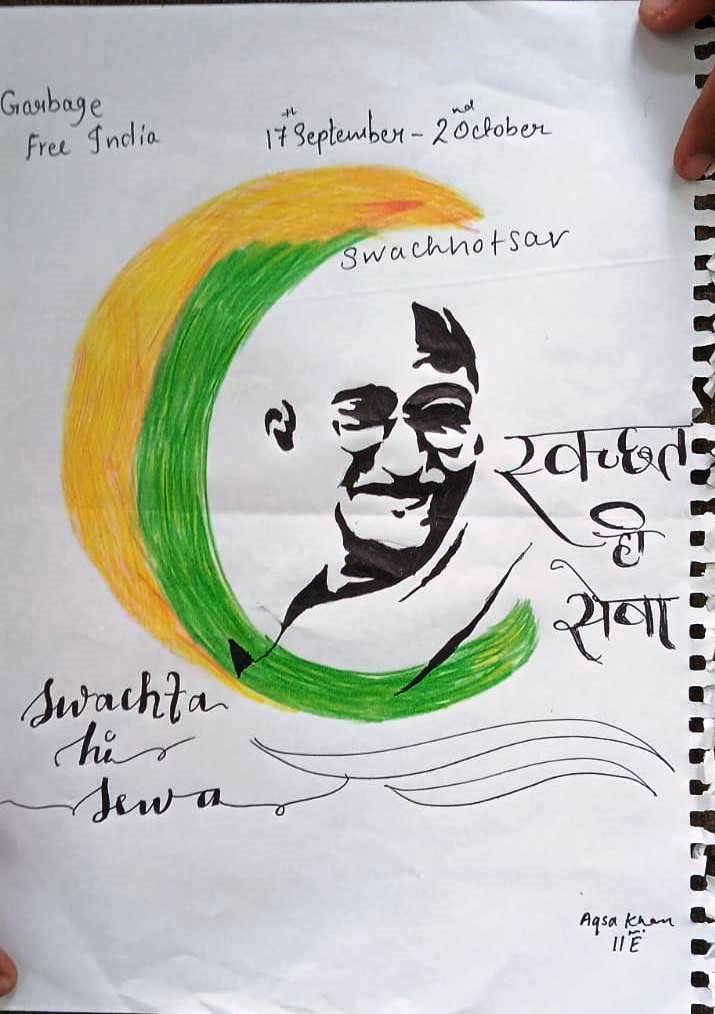 Garbage
Free India
17th September - 2nd October
Swachhotsav
स्वच्छत
ही
सेवा
Swachta
hi
Sewa
Aqsa Khan
11 E